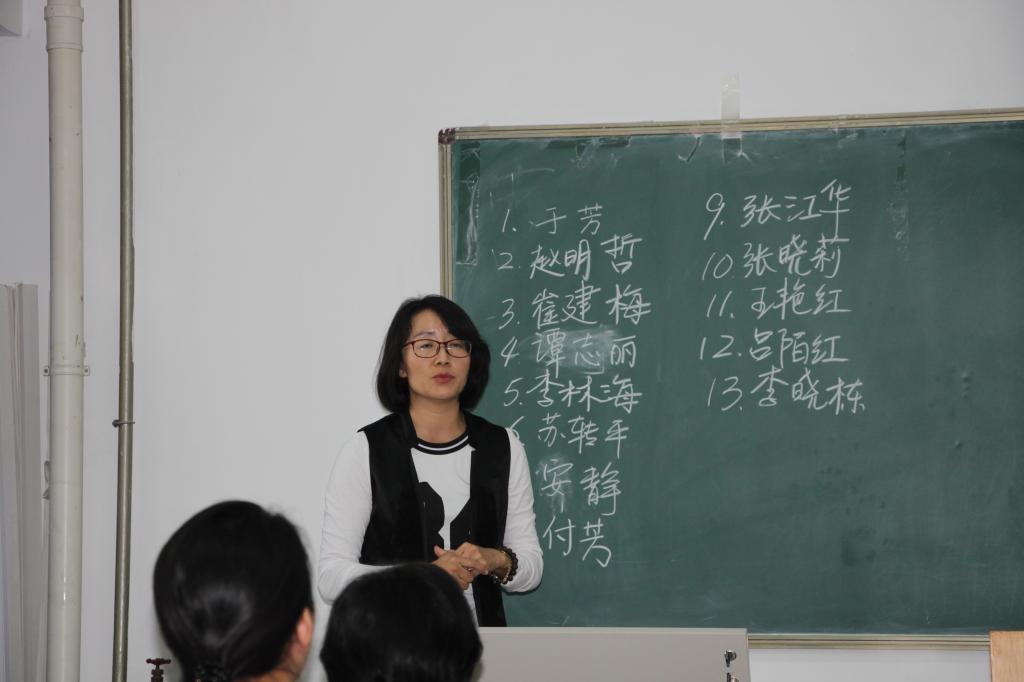 1. 于芳
2. 赵明哲
3. 崔建梅
4 谭志丽
5. 李林海
6 苏转平
安静
付芳
9. 张江华
10 张晓莉
11. 王艳红
12. 吕陌红
13. 李晓栋